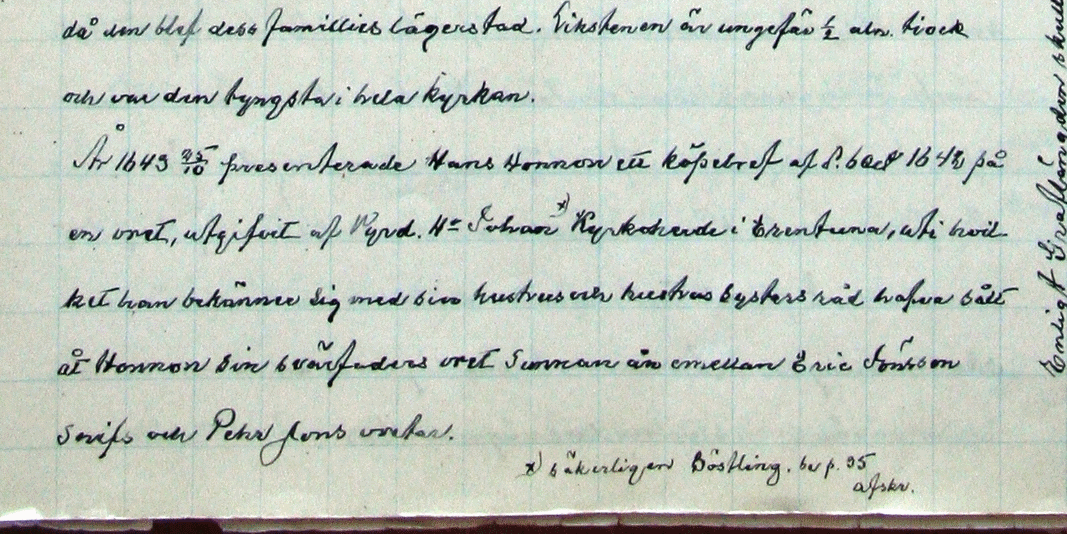 då den blef dess familliés lägerstad. Likstenen är ungefär ½ aln. tiock
och var den tyngsta i hela kyrkan.
År 1643 25/10 presenterade Hans Honnon ett köpebref af d. 1642 på
en vret, utgifvit af Vyrd. Hr Johan x) Kyrkoherde i Ärentuna, uti hvil-
ket han bekänner sig med sin hustrus och hustrus systers råd hafva sålt
åt Honnon sin svärfaders vret sunnan ån emellan Eric Jönsson
och Pehr Jons vretar.
x) säkerligen Böstling. se p. 95
afskr.
Enligt Graflängden skull